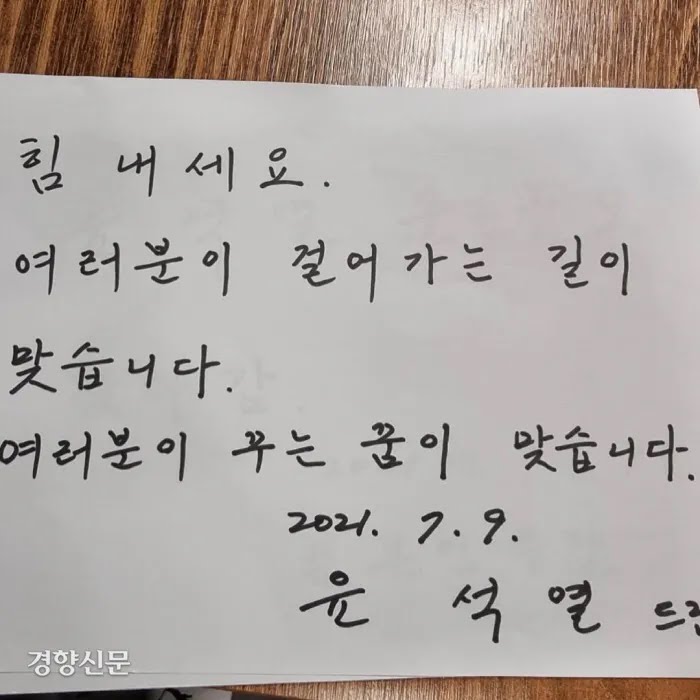 힘 내세요.
여러분이 걸어가는 길이
맞습니다.
여러분이 꾸는 꿈이 맞습니다.
2021. 7. 9.
윤 석 열
경향신문